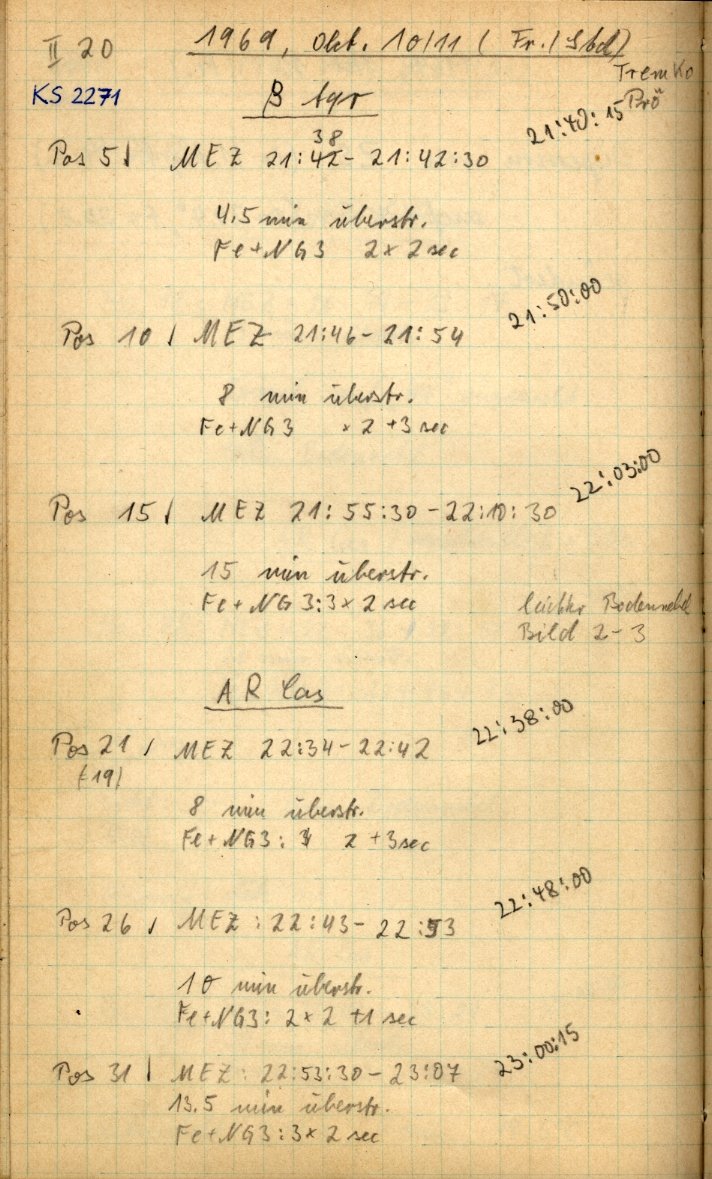 II 20
1969, Okt. 10/11 (Fr./Sbd)
Tremko
Brö
KS 2271
β lyr
21:40:15
38
Pos 5↓ MEZ 21:42- 21:42:30
4.5 min überstr.
Fe+NG3 2x 2 sec
21:50:00
Pos 10 ↓ MEZ 21:46- 21:54
8 min überstr.
Fe+NG3 x 2 +3 sec
22:03:00
Pos 15↓ MEZ 21:55:30 -22:10:30
15 min überstr.
Fe+NG3:3x 2 sec
leichter Bodennebel
Bild 2-3
AR Cas
22:38:00
Pos 21 ↓ MEZ 22:34-22:42
(-19)
8 min überstr.
Fe+NG3: 2 +3sec
22:48:00
Pos 26 ↓ MEZ: 22:43- 22:53
10 min überstr.
Fe+NG3: 2x 2 +1 sec
23:00:15
Pos 31 ↓ MEZ: 22:53:30- 23:07
13.5 min überstr.
Fe+NG3:3x 2 sec